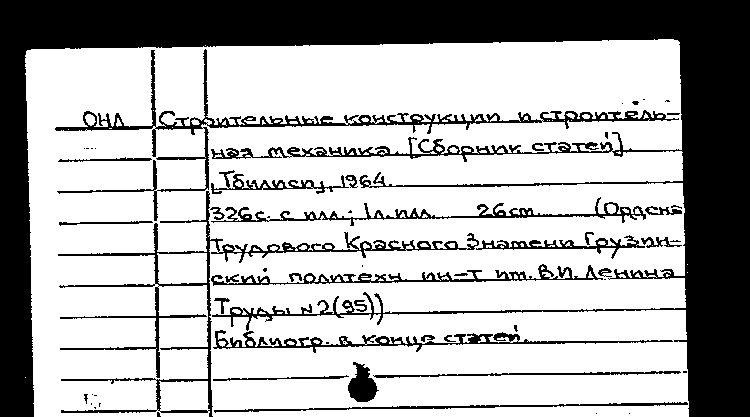 ОНЛ Строительные конструкции и строитель-
ная механика. [Сборник статей].
[Тбилиси], 1964.
326с. с илл.; 1л.илл. 26cm (Ордена
Трудового Красного Знамени Грузин-
ский политехн ин-т им. В.И. Ленина
Труды №2(95))
Библиогр. в конце статей.